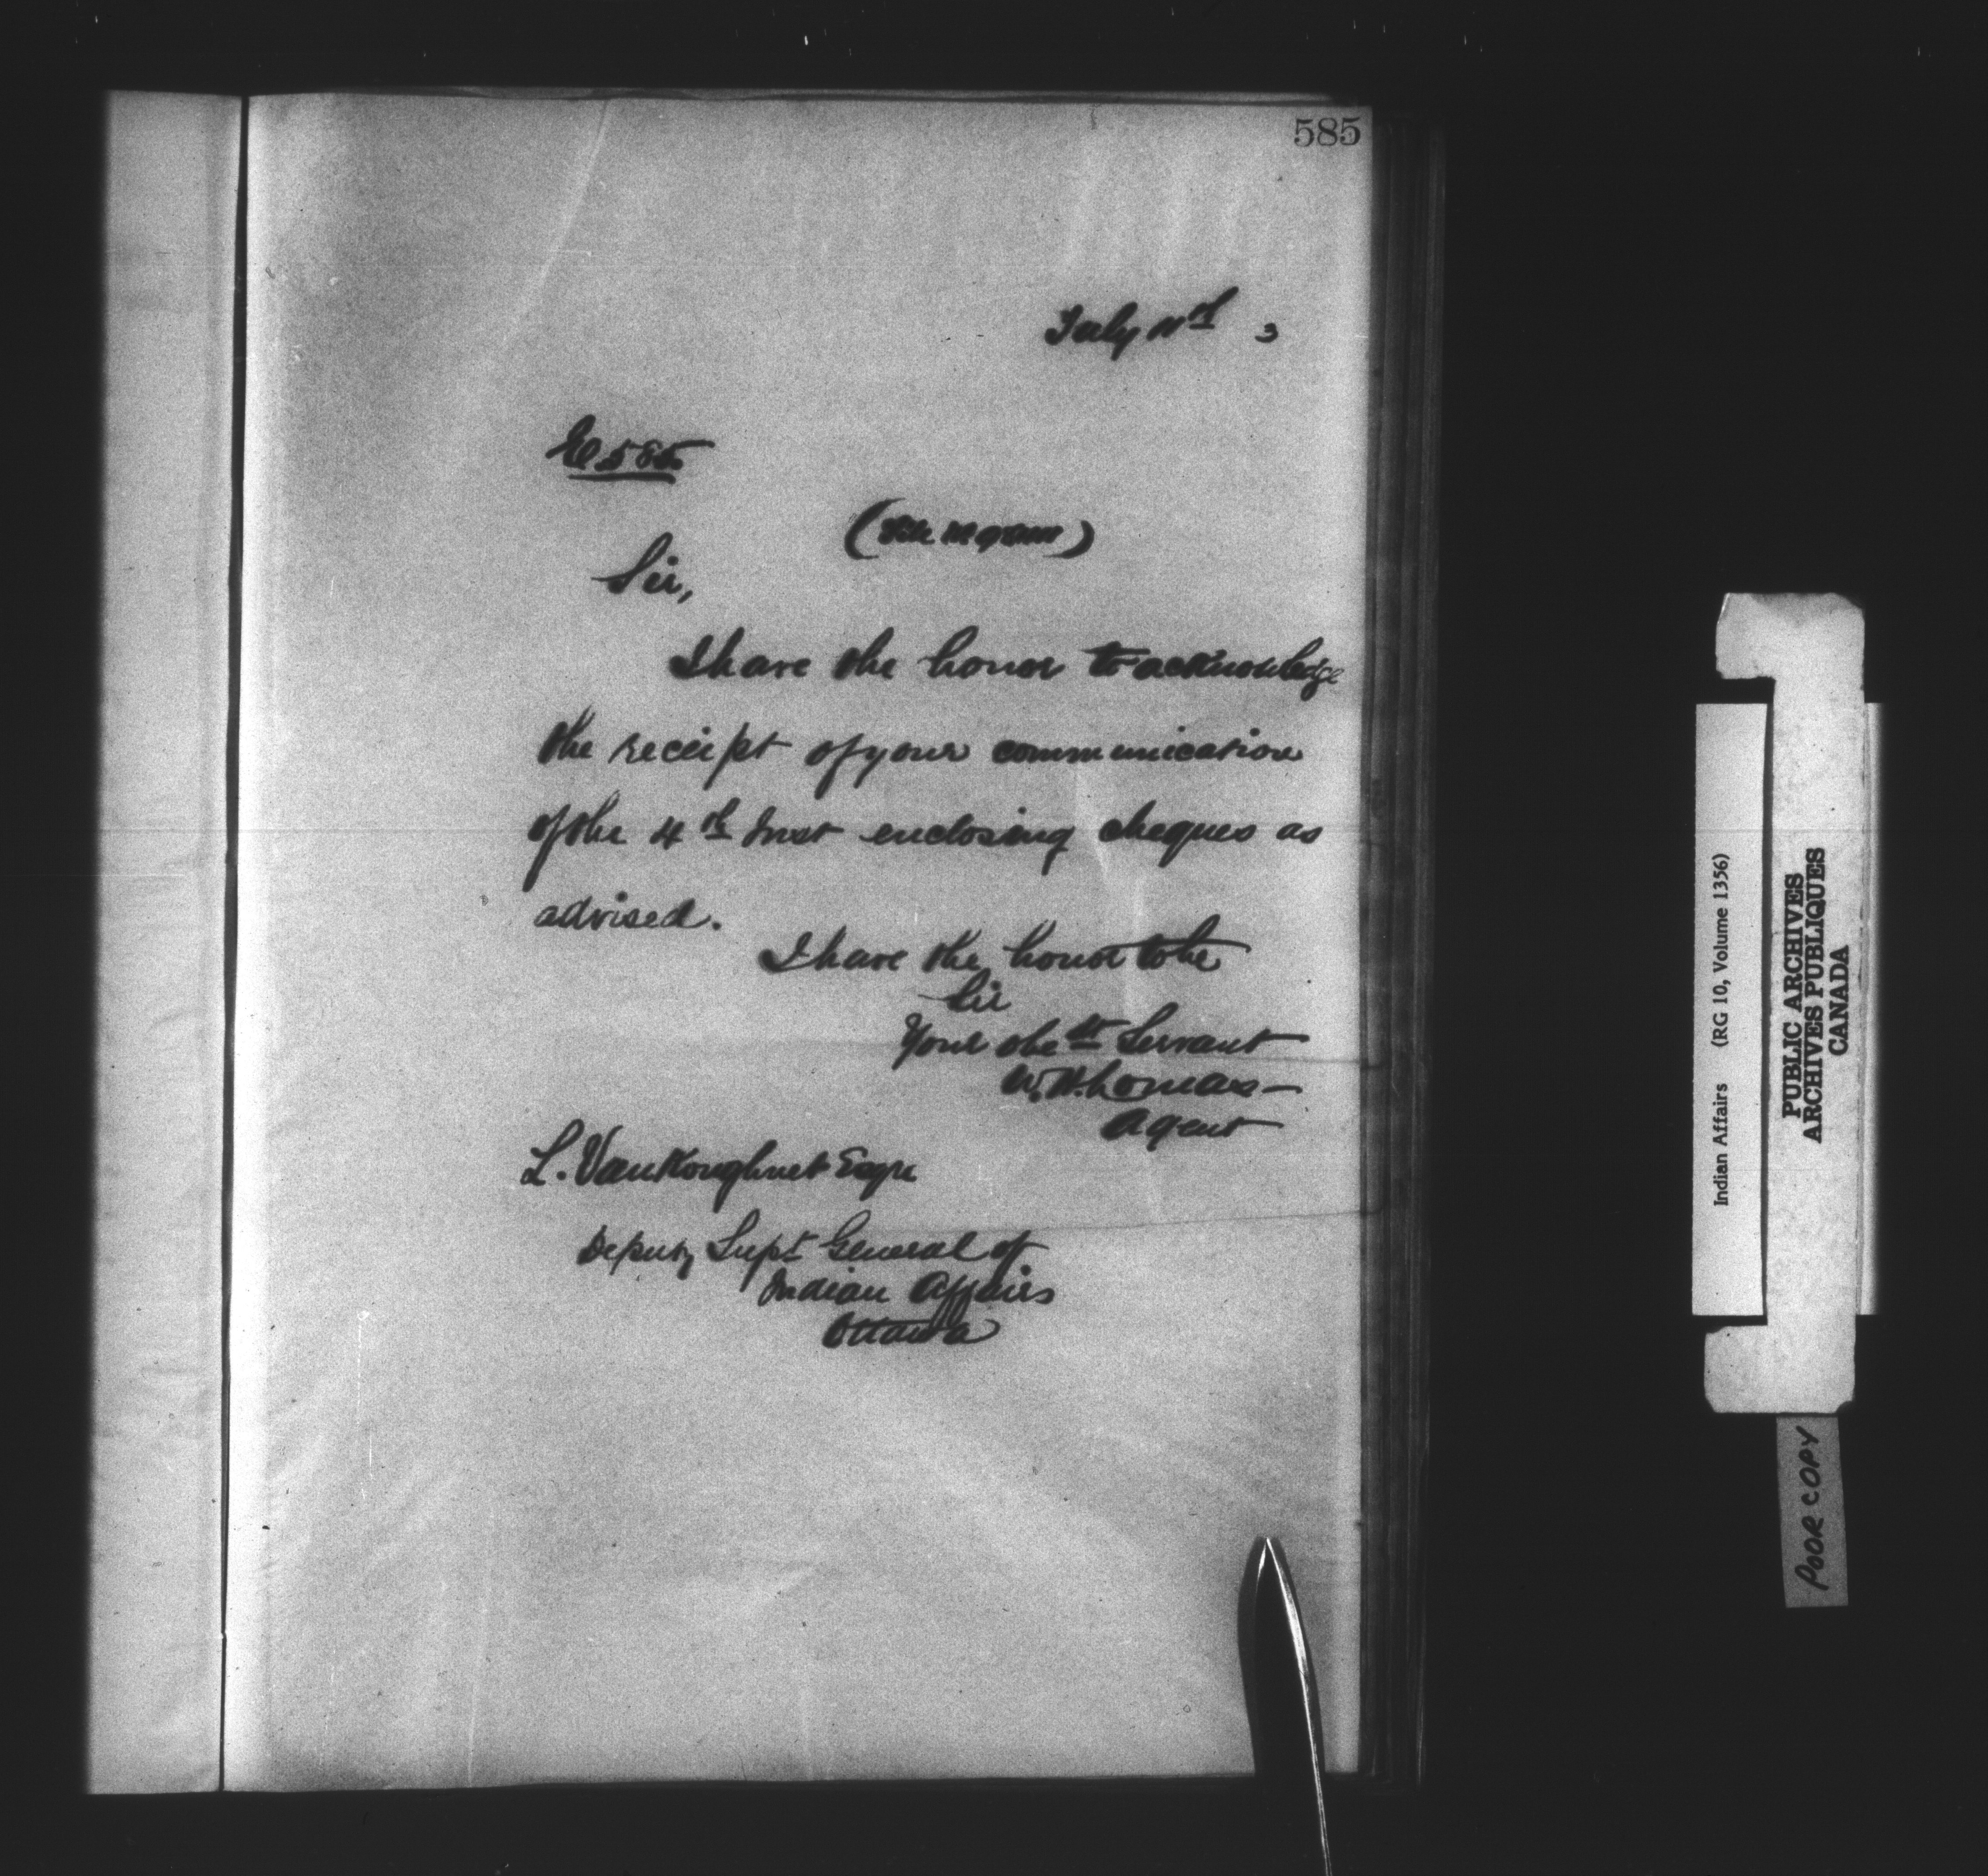 585
July 11th 3
E 585
Sir,
I have the honor to acknowledge
the receipt of your communication
of the 4th Inst enclosing cheques as
advised.
I have the honor to be
Sir
Your obedt Servant
W. H. Lomas
Agent
L. VanKoughnet Esqre
Deputy Supt General of
Indian Affairs
Ottawa
Indian Affairs (RG 10, Volume 1356)
PUBLIC ARCHIVES
ARCHIVES PUBLIQUES
CANADA
POOR COPY